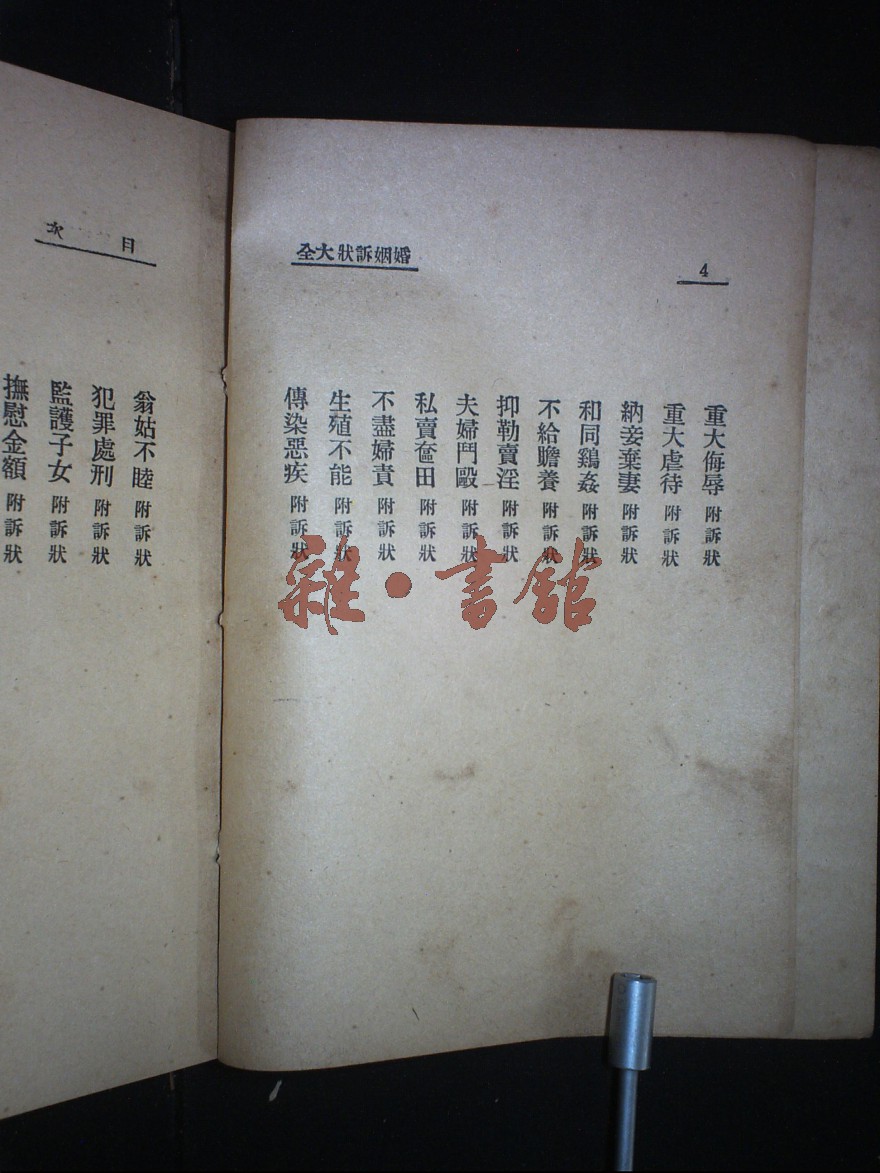 4
婚姻訴狀大全
重大侮辱 附訴狀
重大虐待 附訴狀
納妾棄妻 附訴狀
和同鷄姦 附訴狀
不給贍養 附訴狀
抑勒賣淫 附訴狀
夫婦鬥毆 附訴狀
私賣奩田 附訴狀
不盡婦責 附訴狀
生殖不能 附訴狀
傳染惡疾 附訴狀
目次
翁姑不睦 附訴狀
犯罪處刑 附訴狀
監護子女 附訴狀
撫慰金額 附訴狀
雜·書館